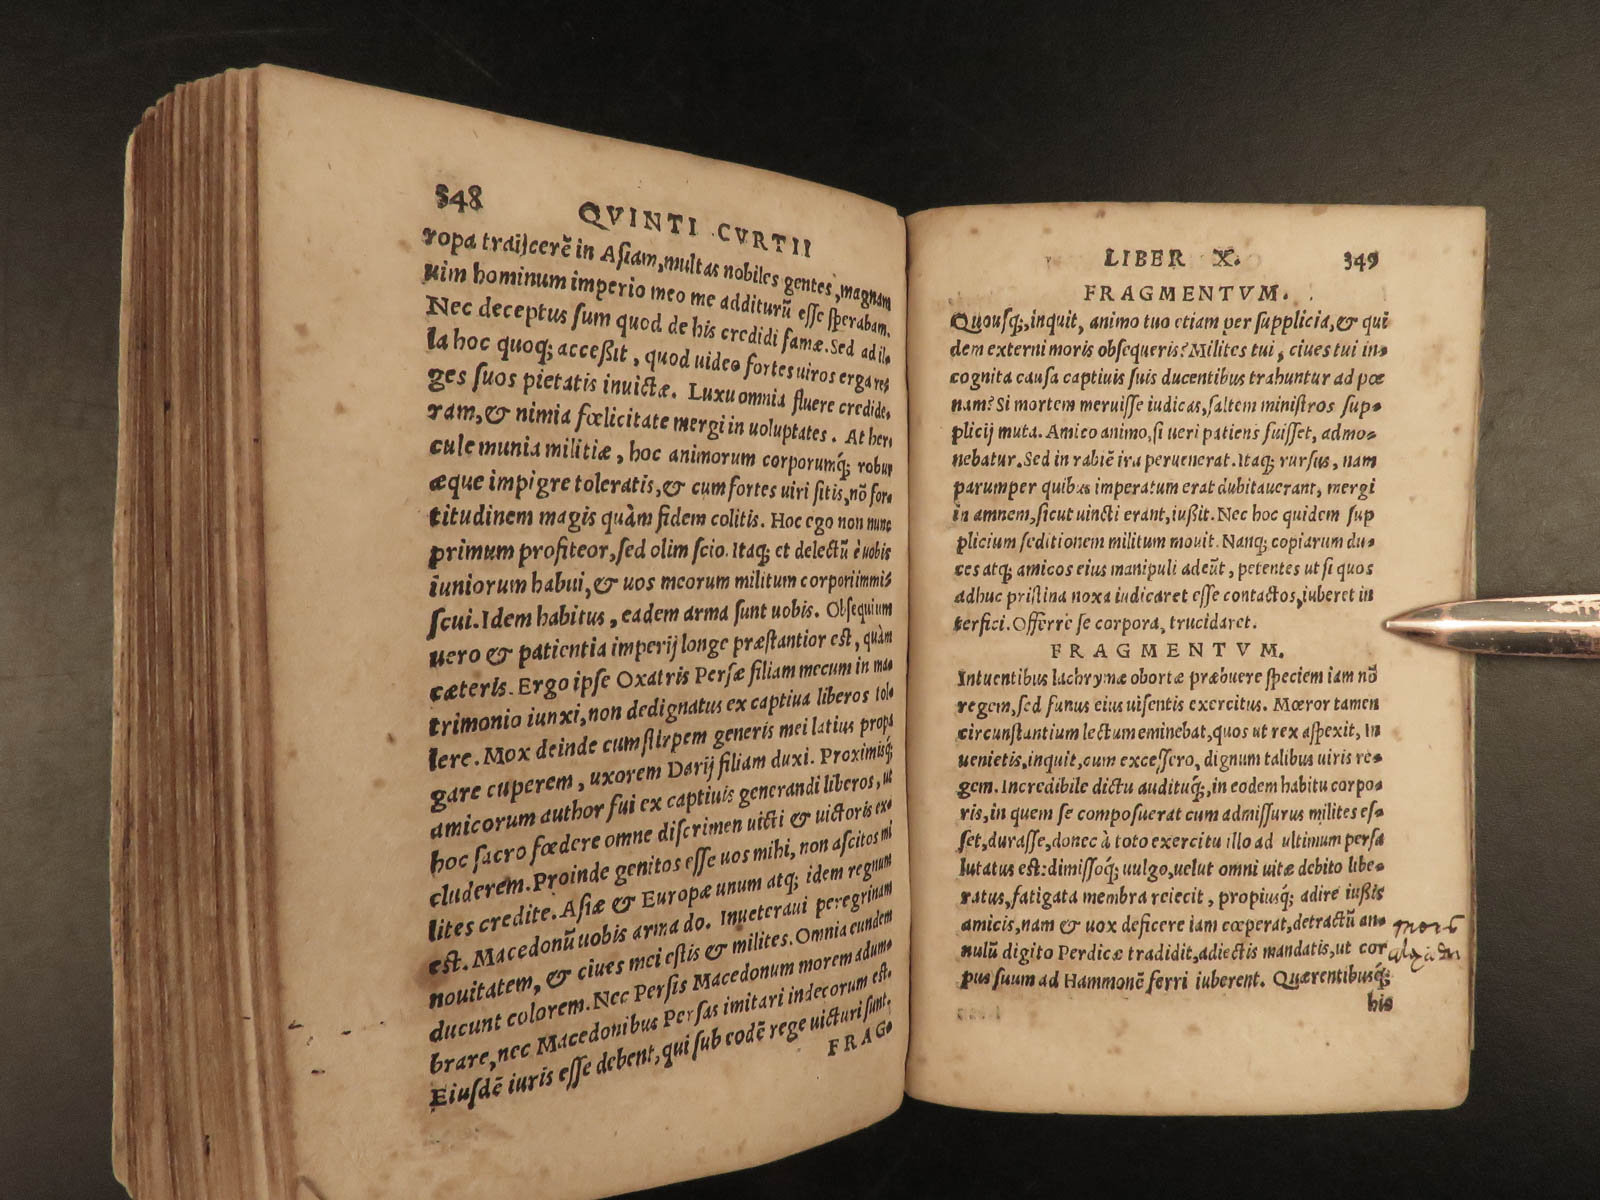 348
QVINTI CVRTII
ropa traijcerē in Aſiam, multas nobiles gentes, magnam
uim hominum imperio meo me additurū eſſe ſperabam.
Nec deceptus ſum quod de his credidi famæ. Sed ad il-
la hoc quoq; acceßit, quod uideo fortes uiros erga re-
ges ſuos pietatis inuictæ. Luxu omnia fluere credide-
ram, & nimia fœlicitate mergi in uoluptates. At her-
cule munia militiæ, hoc animorum corporumq́; robur
æque impigre toleratis, & cum fortes uiri ſitis, nō for-
titudinem magis quàm fidem colitis. Hoc ego non nunc
primum profiteor, ſed olim ſcio. Itaq; et delectū è uobis
iuniorum habui, & uos meorum militum corpori immi-
ſcui. Idem habitus, eadem arma ſunt uobis. Obſequium
uero & patientia imperij longe præſtantior est, quàm
cæteris. Ergo ipſe Oxatris Perſæ filiam mecum in ma-
trimonio iunxi, non dedignatus ex captiua liberos tol-
lere. Mox deinde cum ſtirpem generis mei latius propa
gare cuperem, uxorem Darij filiam duxi. Proximisq́;
amicorum author fui ex captiuis generandi liberos, ut
hoc ſacro fœdere omne diſcrimen uicti & uictoris ex-
cluderem. Proinde genitos eſſe uos mihi, non aſcitos mi
lites credite. Aſiæ & Europæ unum atq; idem regnum
est. Macedonū uobis arma do. Inueteraui peregrinam
nouitatem, & ciues mei estis & milites. Omnia eundem
ducunt colorem. Nec Perſis Macedonum morem adum-
brare, nec Macedonibus Perſas imitari indecorum est.
Eiuſdē iuris eſſe debent, qui ſub eodē rege uicturi ſunt.
FRAG-
LIBER X.
349
FRAGMENTVM.
Quouſq;, inquit, animo tuo etiam per ſupplicia, & qui
dem externi moris obſequeris? Milites tui, ciues tui in-
cognita cauſa captiuis ſuis ducentibus trahuntur ad pœ
nam? Si mortem meruiſſe iudicas, ſaltem ministros ſup-
plicij muta. Amico animo, ſi ueri patiens fuiſſet, admo-
nebatur. Sed in rabiē ira peruenerat. Itaq; rurſus, nam
parumper quibus imperatum erat dubitauerant, mergi
in amnem, ſicut uincti erant, iußit. Nec hoc quidem ſup
plicium ſeditionem militum mouit. Nanq; copiarum du-
ces atq; amicos eius manipuli adeūt, petentes ut ſi quos
adhuc pristina noxa iudicaret eſſe contactos, iuberet in
terfici. Offerre ſe corpora, trucidaret.
FRAGMENTVM.
Intuentibus lachrymæ obortæ præbuere ſpeciem iam nō
regem, ſed funus eius uiſentis exercitus. Mœror tamen
circunstantium lectum eminebat, quos ut rex aſpexit, In
uenietis, inquit, cum exceſſero, dignum talibus uiris re-
gem. Incredibile dictu audituq́;, in eodem habitu corpo-
ris, in quem ſe compoſuerat cum admiſſurus milites eſ-
ſet, duraſſe, donec à toto exercitu illo ad ultimum perſa
lutatus est: dimiſſoq́; uulgo, uelut omni uitæ debito libe-
ratus, fatigata membra reiecit, propiusq́; adire iußis
amicis, nam & uox deficere iam cœperat, detractū an-
nulū digito Perdicæ tradidit, adiectis mandatis, ut cor
pus ſuum ad Hammonē ferri iuberent. Quærentibusq́;
his
mors